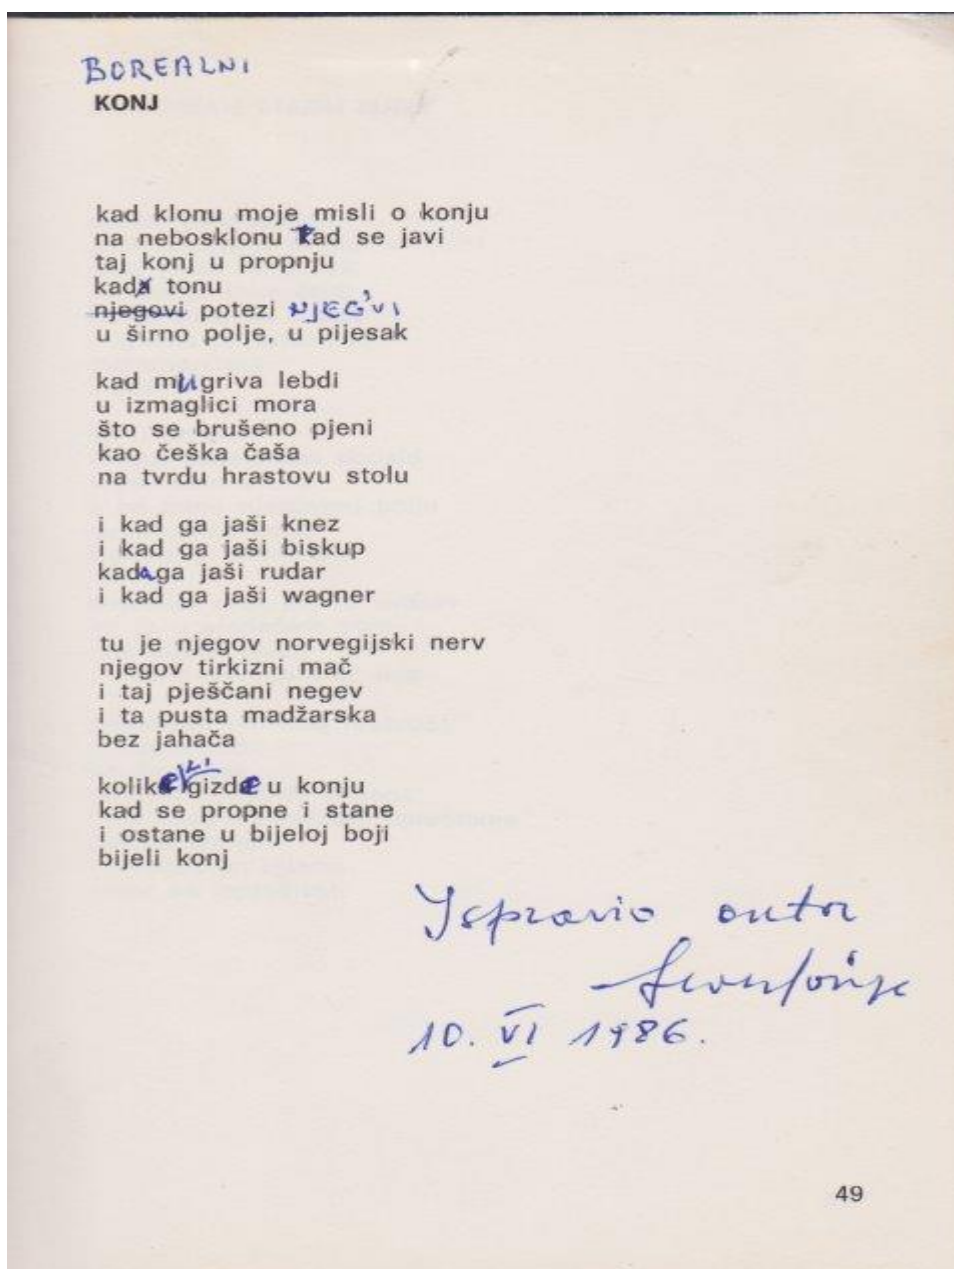 BOREALNI
KONJ
kad klonu moje misli o konju
na nebosklonu kad se javi
taj konj u propnju
kad tonu
njegovi potezi NJEG'VI
u širno polje, u pijesak
kad mu griva lebdi
u izmaglici mora
što se brušeno pjeni
kao češka čaša
na tvrdu hrastovu stolu
i kad ga jaši knez
i kad ga jaši biskup
kada ga jaši rudar
i kad ga jaši wagner
tu je njegov norvegijski nerv
njegov tirkizni mač
i taj pješčani negev
i ta pusta madžarska
bez jahača
gizde u konju
kad se propne i stane
i ostane u bijeloj boji
bijeli konj
Ispravio autor
10. VI 1986.
49